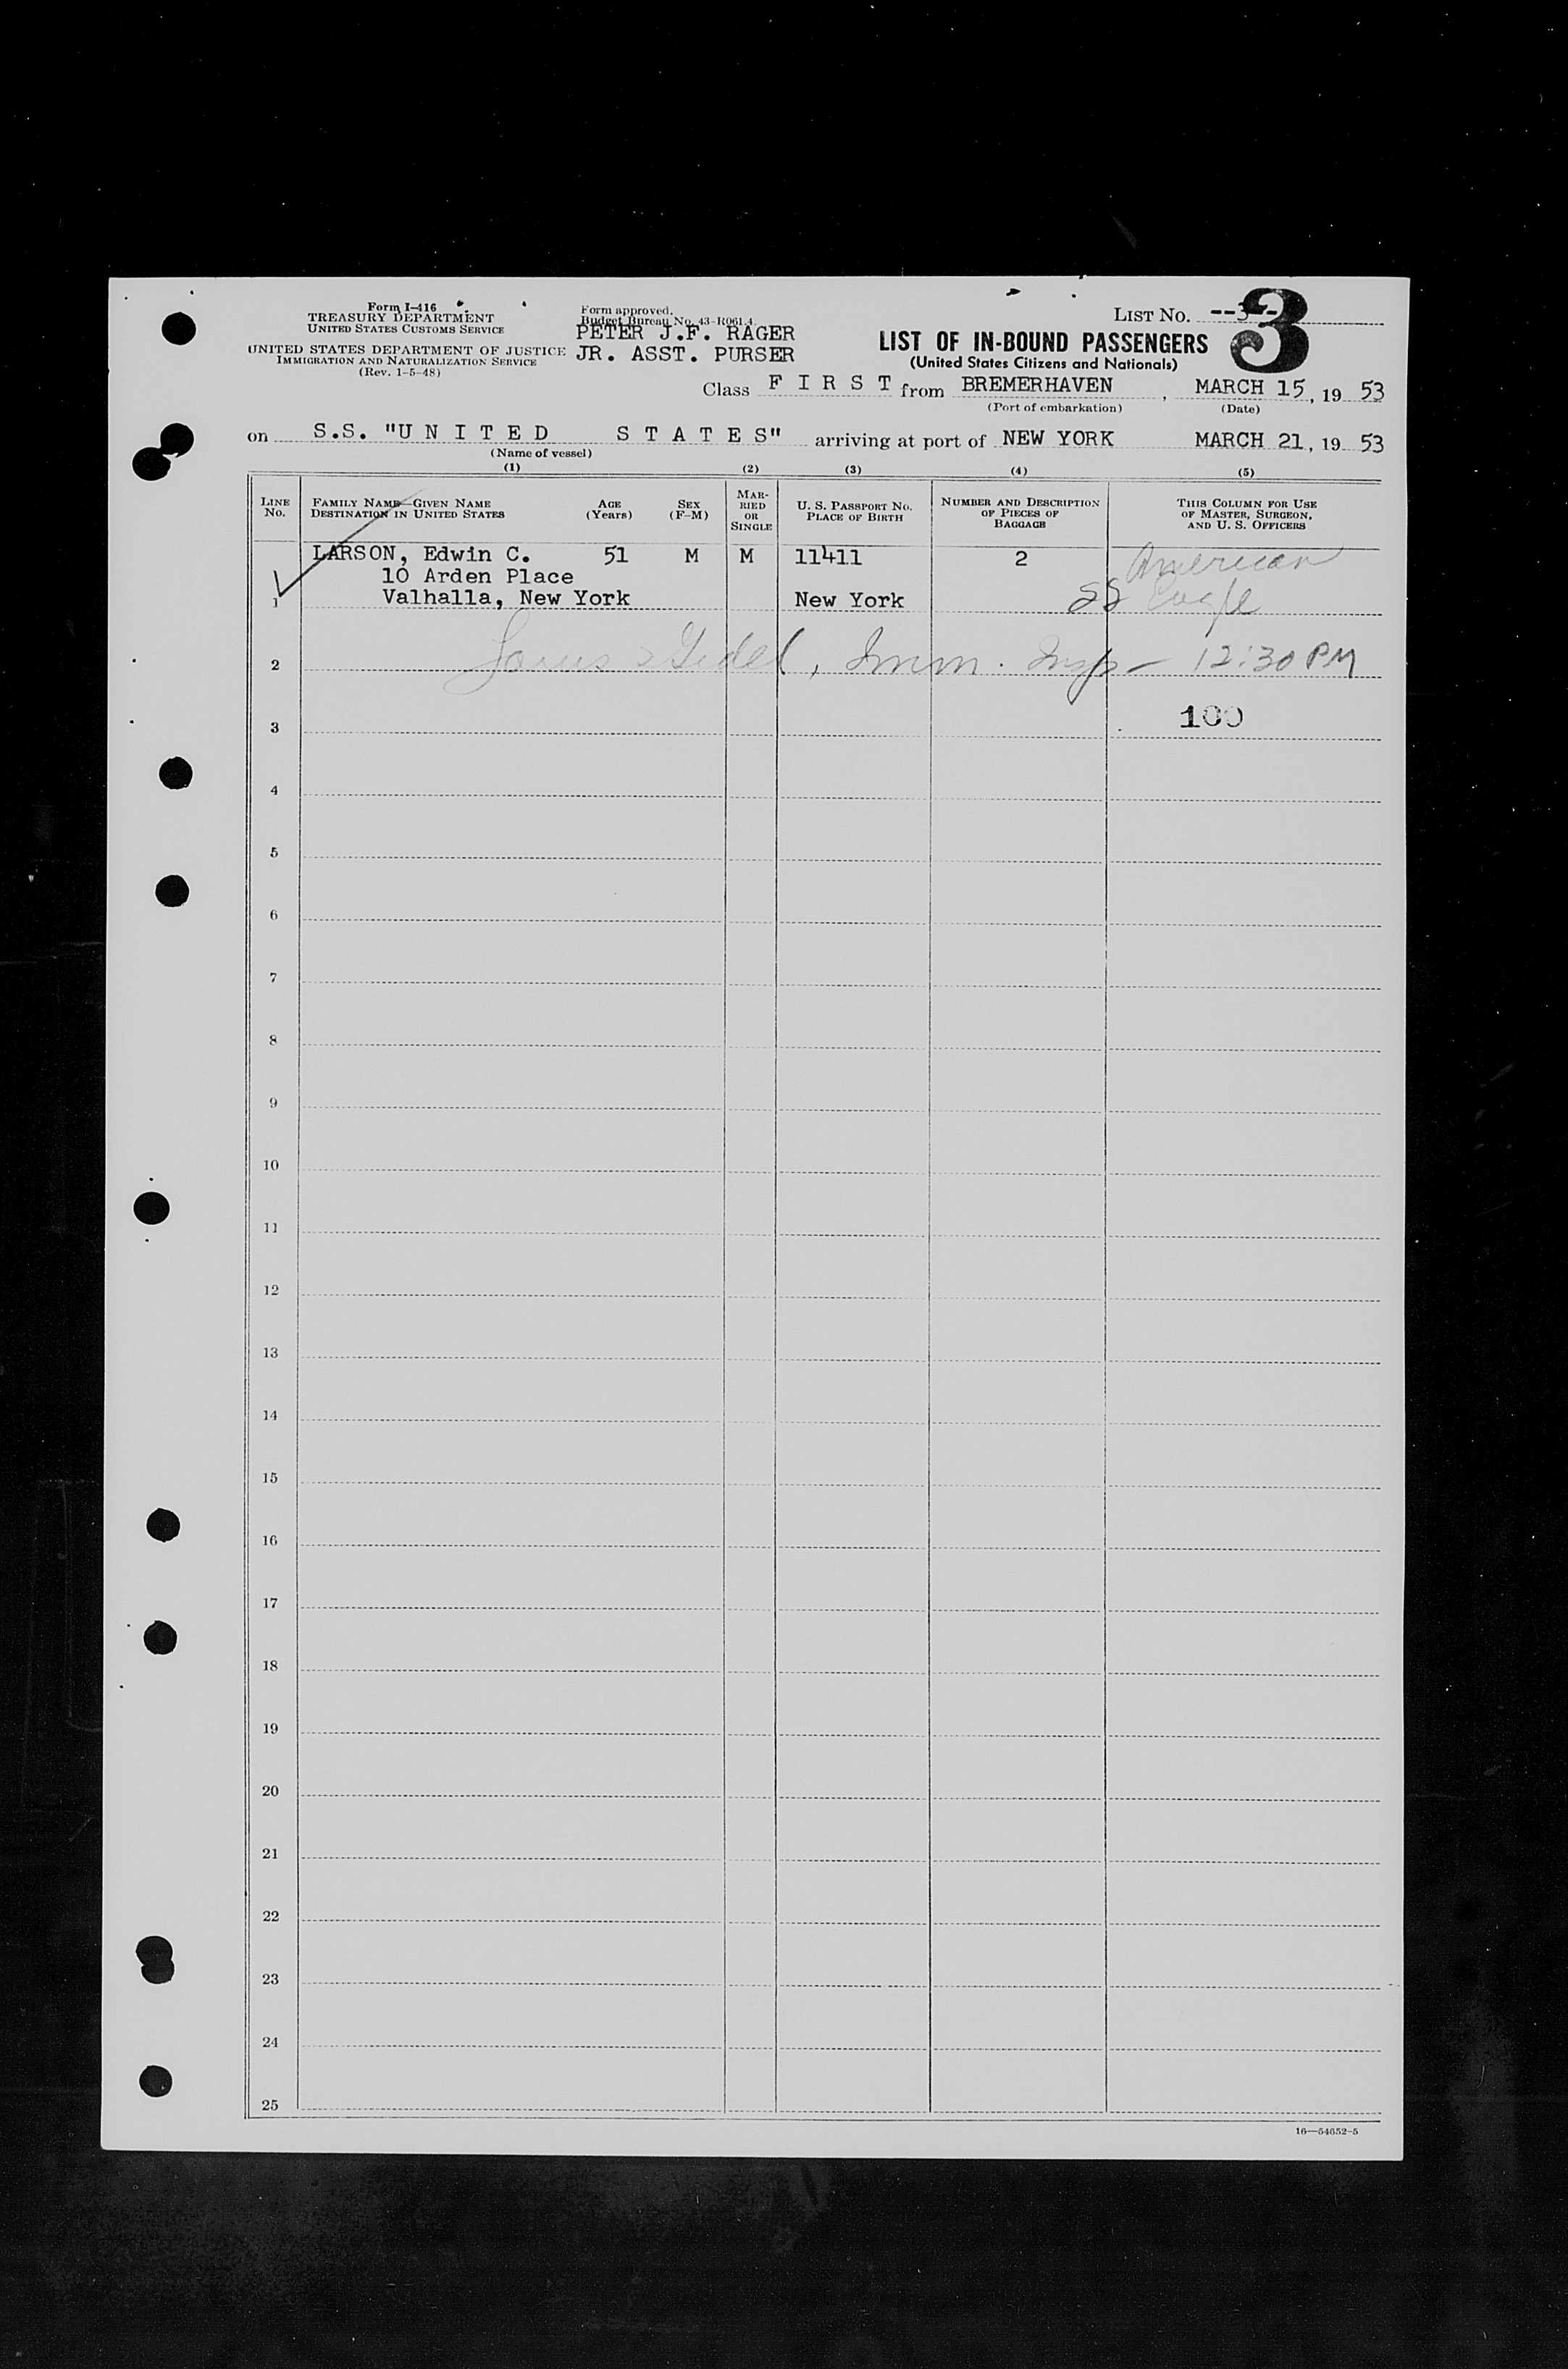 Form I-416
TREASURY DEPARTMENT
UNITED STATES CUSTOMS SERVICE
UNITED STATES DEPARTMENT OF JUSTICE
IMMIGRATION AND NATURALIZATION SERVICE
(Rev. 1-5-48)
Form approved.
Budget Bureau No. 43-R061.4
PETER J.F. RAGER
JR. ASST. PURSER
LIST NO. --3--
3
LIST OF IN-BOUND PASSENGERS
(United States Citizens and Nationals)
Class F I R S T from BREMERHAVEN, MARCH 15, 19 53
(Port of embarkation) (Date)
on S.S. "U N I T E D S T A T E S" arriving at port of NEW YORK MARCH 21, 19 53
(Name of vessel)
(1) (2) (3) (4) (5)
LINE No.
FAMILY NAME—GIVEN NAME
DESTINATION IN UNITED STATES
AGE (Years)
SEX (F-M)
MARRIED OR SINGLE
U. S. PASSPORT NO.
PLACE OF BIRTH
NUMBER AND DESCRIPTION
OF PIECES OF
BAGGAGE
THIS COLUMN FOR USE
OF MASTER, SURGEON,
AND U. S. OFFICERS
LARSON, Edwin C. 51 M M 11411 2 American
10 Arden Place
1 Valhalla, New York New York SS Eagle
2 Imm. Insp - 12:30 PM
3 100
4
5
6
7
8
9
10
11
12
13
14
15
16
17
18
19
20
21
22
23
24
25
16—54652-5